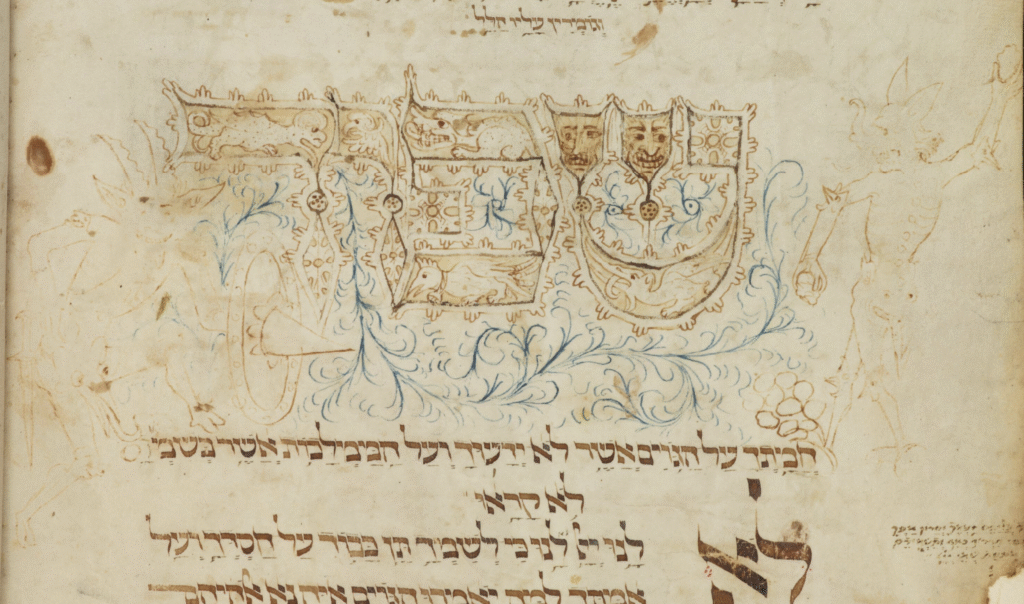 וגומרין עליו הלל
שפוך
חמתך על הגוים אשר לא ידעוך ועל הממלכות אשר בשמך
לא קראו
לא
לנו יי לא לנו כי לשמך תן כבוד על חסדך ועל
אמתך למה יאמרו הגוים איה נא אלהיהם